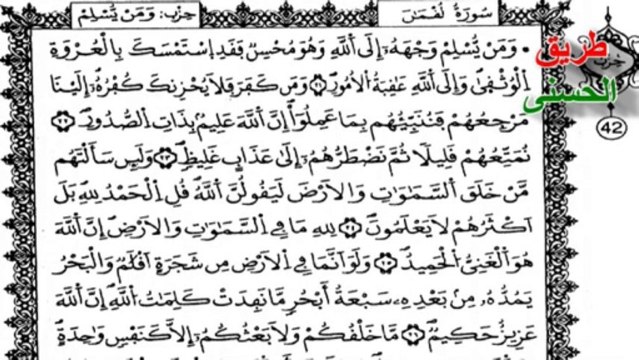 سورة لقمان
حزب: ومن يسلم
حزب
42
طريق
الحسنى
• وَمَنْ يُّسْلِمْ وَجْهَهُۥٓ إِلَى اَللَّهِ وَهُوَ مُحْسِنٌ فَقَدِ اِسْتَمْسَكَ بِالْعُرْوَةِ
اِلْوُثْقَىٰ وَإِلَى اَللَّهِ عَٰقِبَةُ اُلْأُمُورِ وَمَن كَفَرَ فَلَا يُحْزِنكَ كُفْرُهُۥٓ إِلَيْنَا
مَرْجِعُهُمْ فَنُنَبِّئُهُم بِمَا عَمِلُوٓاْ إِنَّ اَللَّهَ عَلِيمٌۢ بِذَاتِ اِلصُّدُورِ
نُمَتِّعُهُمْ قَلِيلًا ثُمَّ نَضْطَرُّهُمُۥٓ إِلَىٰ عَذَابٍ غَلِيظٍ وَلَئِن سَأَلْتَهُم
مَّنْ خَلَقَ اَلسَّمَٰوَٰتِ وَالْأَرْضَ لَيَقُولُنَّ اَللَّهُ قُلِ اِلْحَمْدُ لِلهِ بَلَ
اَكْثَرُهُمْ لَا يَعْلَمُونَ لِلهِ مَا فِي اِلسَّمَٰوَٰتِ وَالْأَرْضِ إِنَّ اَللَّهَ
هُوَ اَلْغَنِيُّ اُلْحَمِيدُ وَلَوَ اَنَّمَا فِي اِلْأَرْضِ مِن شَجَرَةٍ اَقْلَٰمٌ وَالْبَحْرُ
يَمُدُّهُۥ مِنۢ بَعْدِهِۦ سَبْعَةُ أَبْحُرٍ مَّا نَفِدَتْ كَلِمَٰتُ اُللَّهِ إِنَّ اَللَّهَ
عَزِيزٌ حَكِيمٌ مَّا خَلْقُكُمْ وَلَا بَعْثُكُمُۥٓ إِلَّا كَنَفْسٍ وَٰحِدَةٍ